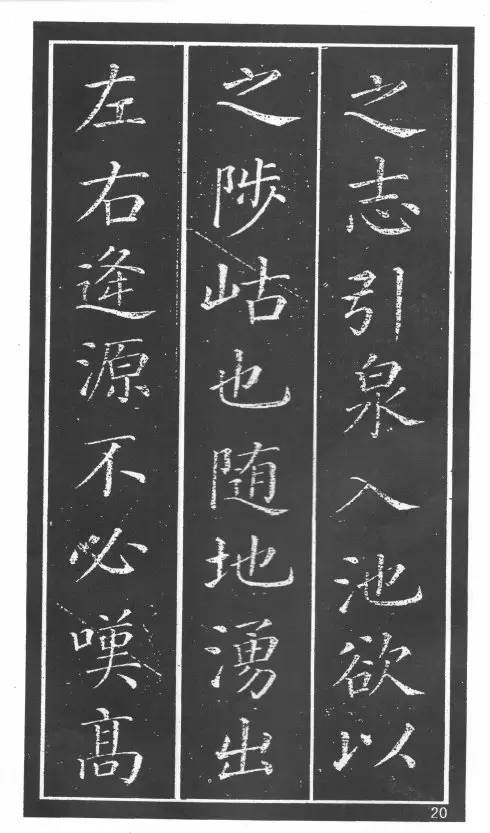 之志引泉入池欲以
之陟岵也随地湧出
左右逢源不必嘆高
20